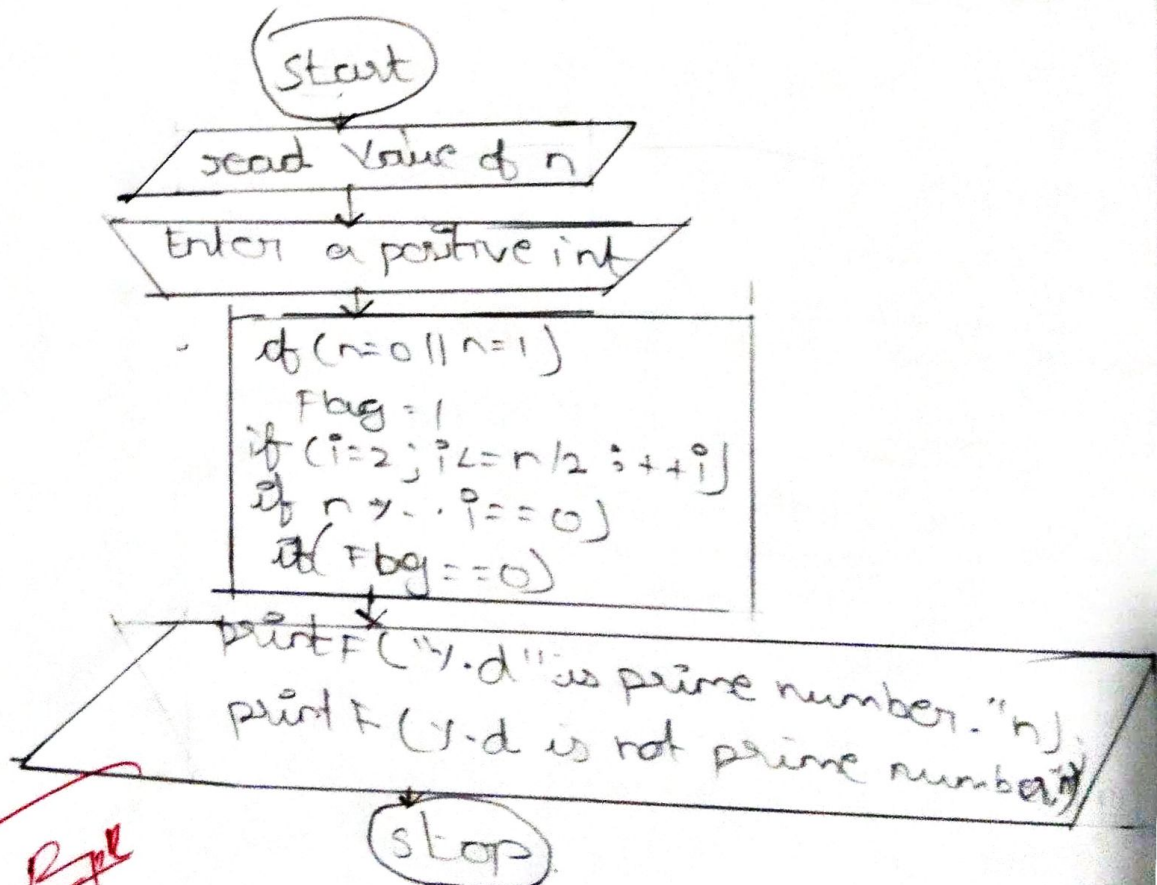 Start
read Value of n
Enter a positive int
if (n=0 || n=1)
Flag = 1
if (i=2; i<=n/2; ++i)
if n % i==0)
if( Flag==0)
printF("%d" is prime number."n).
printF(%d is not prime number
stop